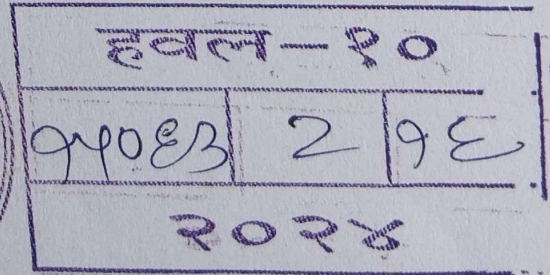 हवल-१०
१५०६३ 2 १६
२०२४